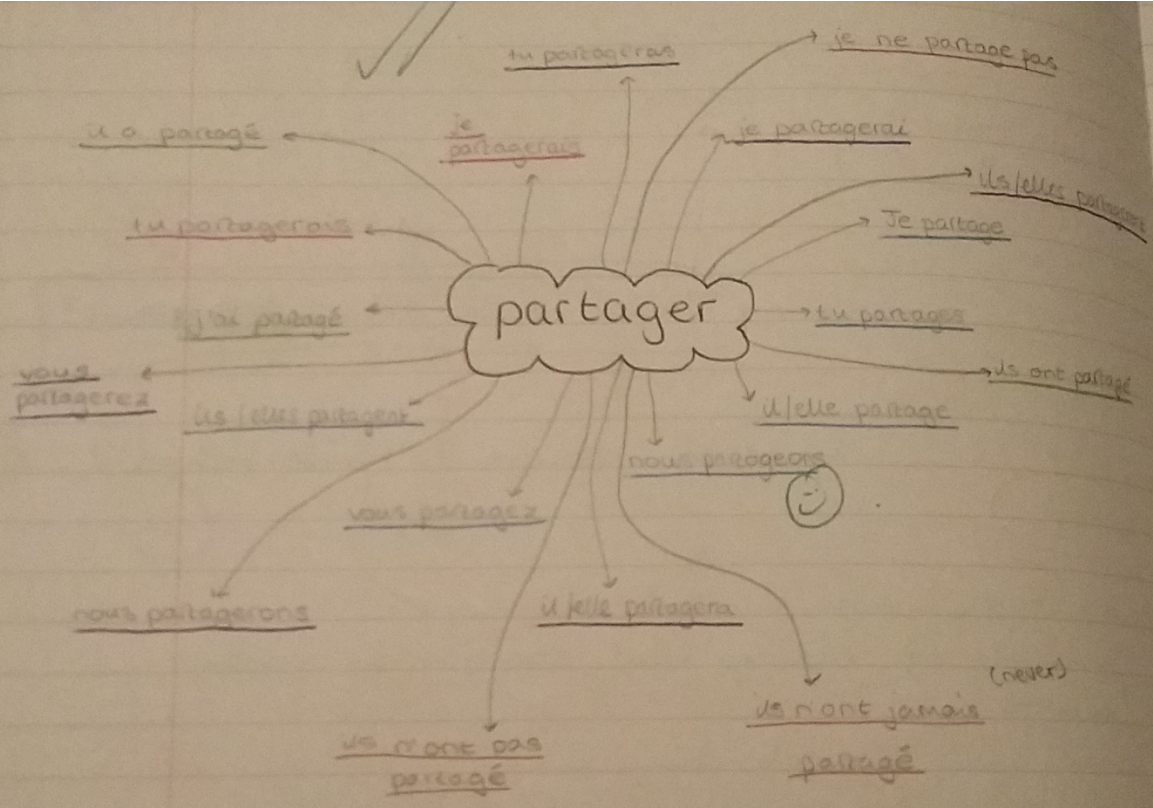 tu partageras
je ne partage pas
il a partagé
je
partagerais
je partagerai
ils/elles
tu partagerais
Je partage
partager
j'ai partagé
tu partages
vous
partagerez
ils ont partagé
ils/elles partagent
il/elle partage
nous partageons
vous partagez
nous partagerons
il/elle partagera
(never)
ils n'ont jamais
partagé
ils n'ont pas
partagé